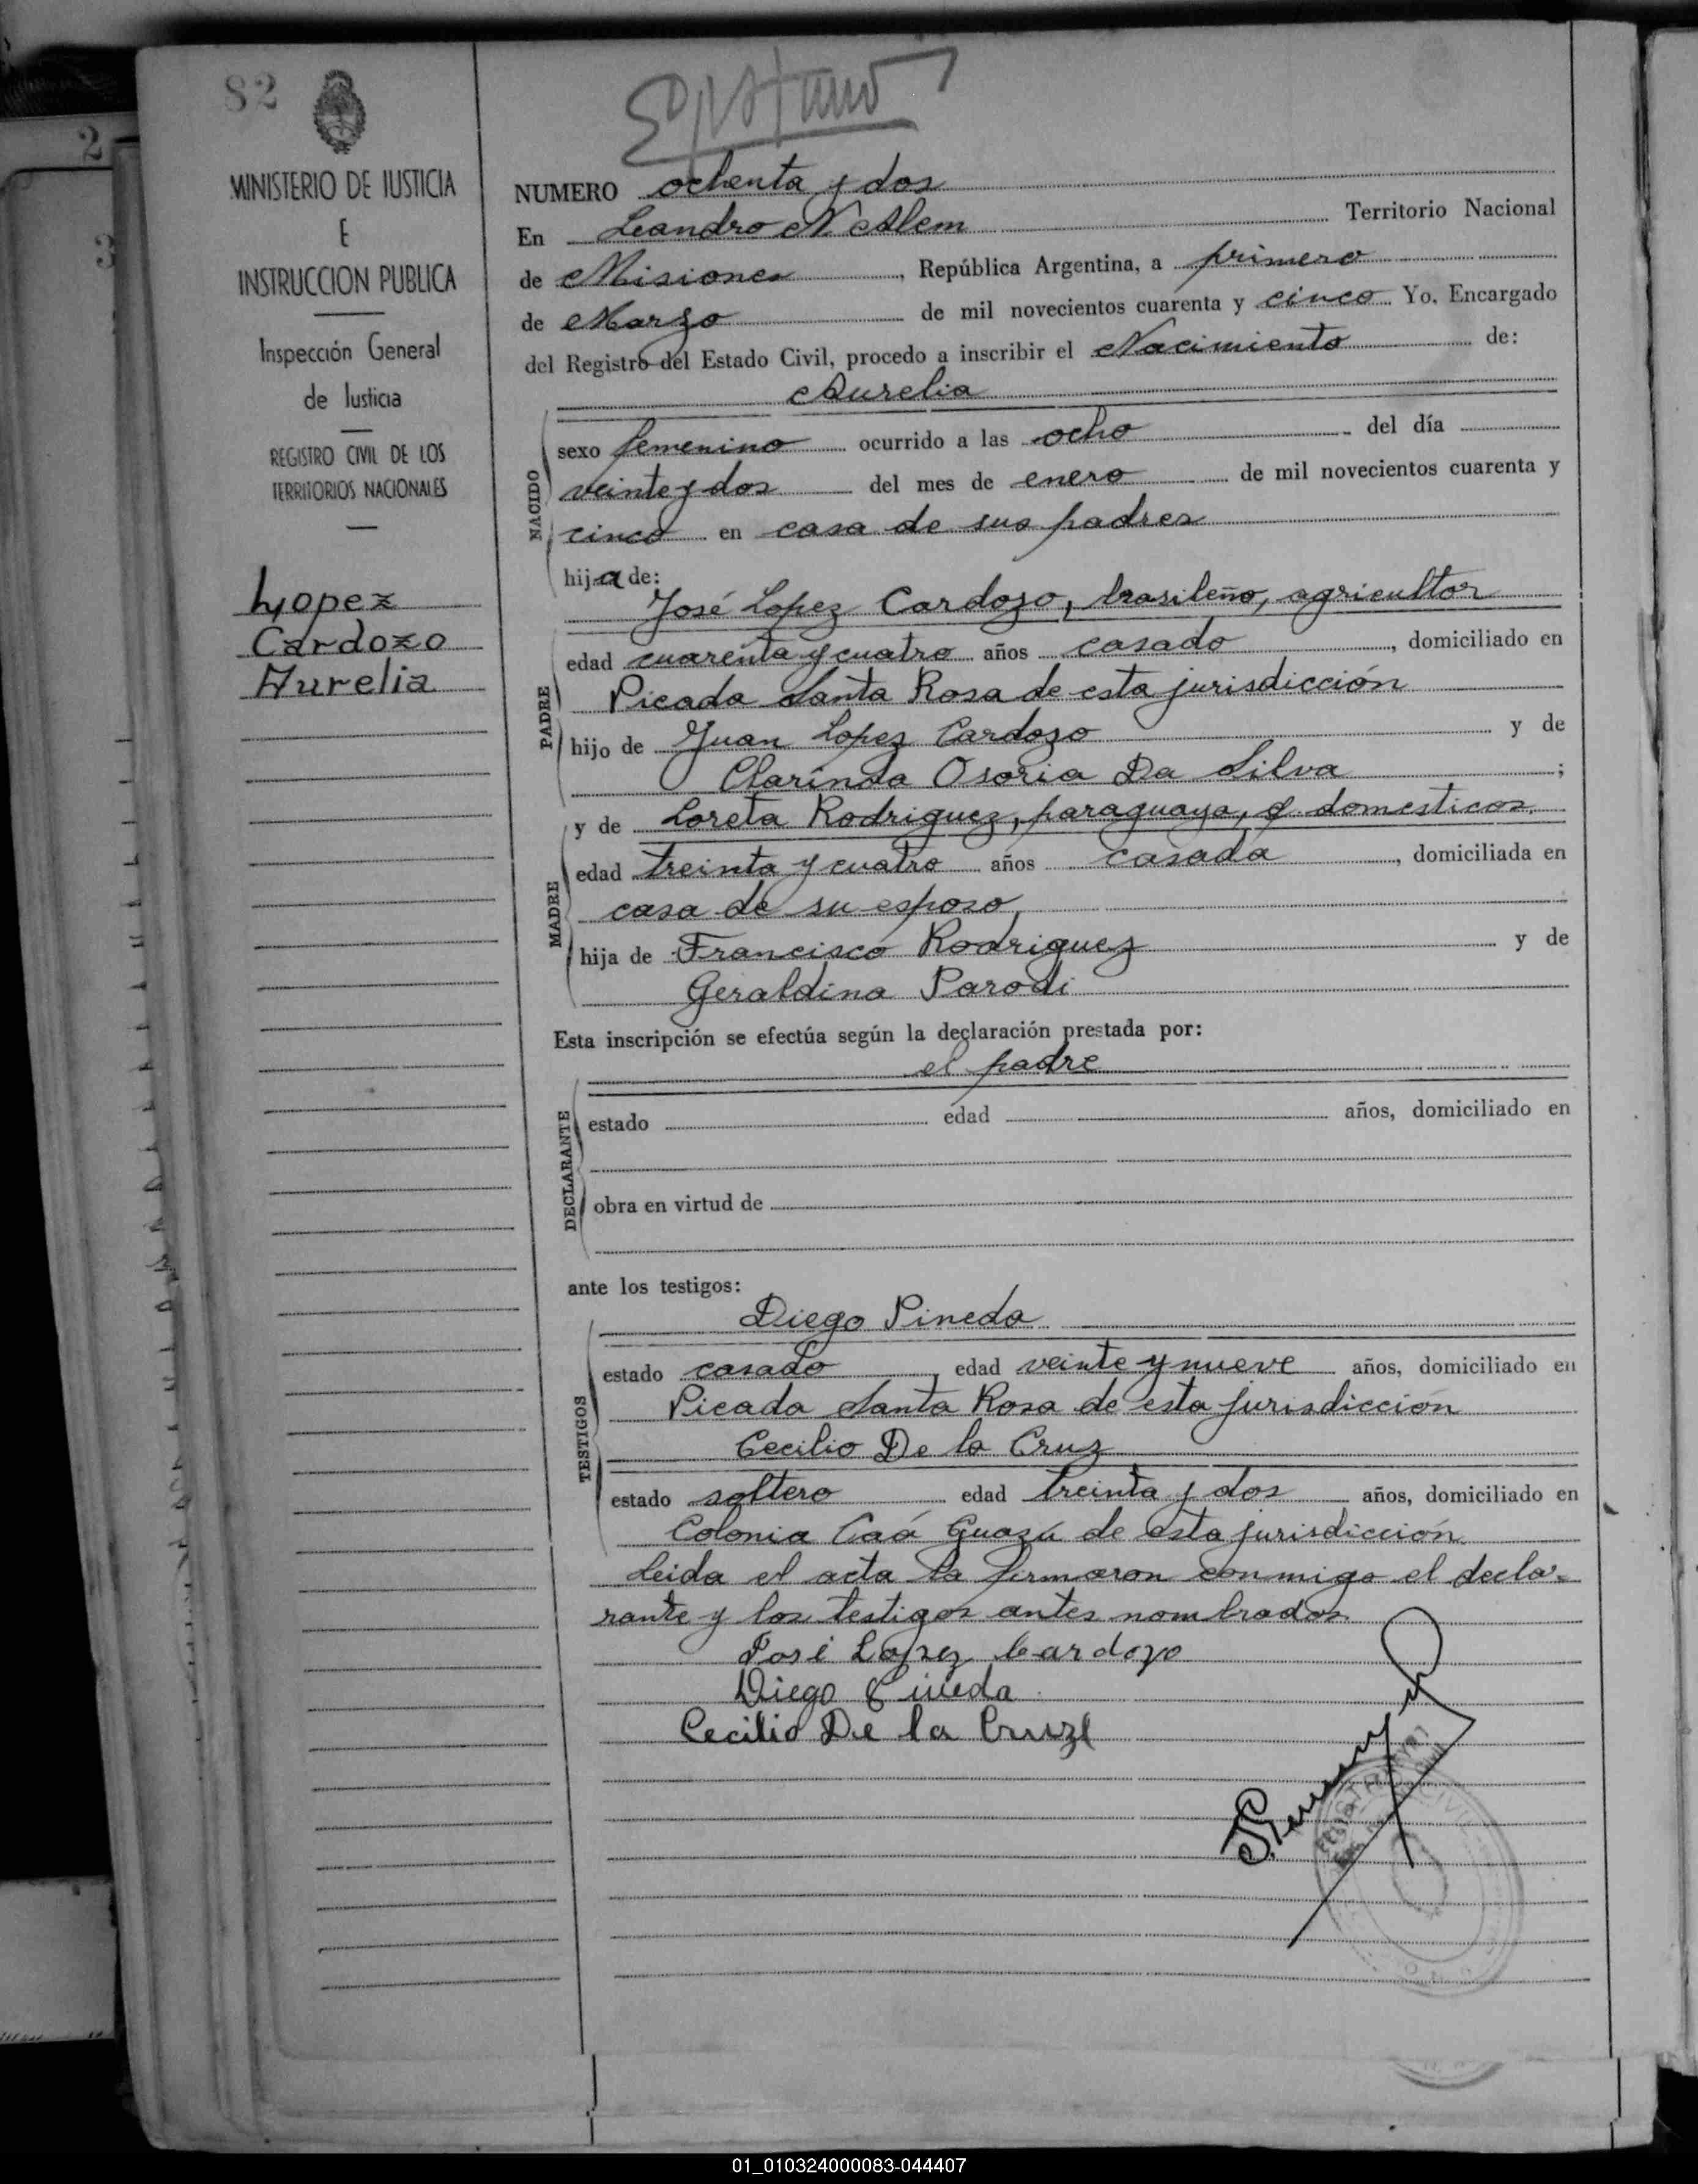 82
MINISTERIO DE JUSTICIA
E
INSTRUCCION PUBLICA
Inspección General
de Justicia
REGISTRO CIVIL DE LOS
TERRITORIOS NACIONALES
Lopez
Cardozo
Aurelia
NUMERO ochenta y dos
En Leandro N Alem Territorio Nacional
de Misiones, República Argentina, a primero
de Marzo de mil novecientos cuarenta y cinco Yo, Encargado
del Registro del Estado Civil, procedo a inscribir el Nacimiento de:
Aurelia
NACIDO
sexo femenino ocurrido a las ocho del día
veinte y dos del mes de enero de mil novecientos cuarenta y
cinco en casa de sus padres
hija de:
José Lopez Cardozo, brasileño, agricultor
PADRE
edad cuarenta y cuatro años casado, domiciliado en
Picada Santa Rosa de esta jurisdicción
hijo de Juan Lopez Cardozo y de
Clarinda Osoria Da Silva;
y de Loreta Rodriguez, paraguaya, q. domesticos
MADRE
edad treinta y cuatro años casada, domiciliada en
casa de su esposo,
hija de Francisco Rodriguez y de
Geraldina Parodi
Esta inscripción se efectúa según la declaración prestada por:
el padre
DECLARANTE
estado edad años, domiciliado en
obra en virtud de
ante los testigos:
Diego Pineda
TESTIGOS
estado casado, edad veinte y nueve años, domiciliado en
Picada Santa Rosa de esta jurisdicción
Cecilio De la Cruz
estado soltero edad treinta y dos años, domiciliado en
Colonia Caá Guazú de esta jurisdicción
Leida el acta la firmaron conmigo el decla-
rante y los testigos antes nombrados
José Lopez Cardozo
Diego Pineda
Cecilio De la Cruz
2
3
01_010324000083-044407